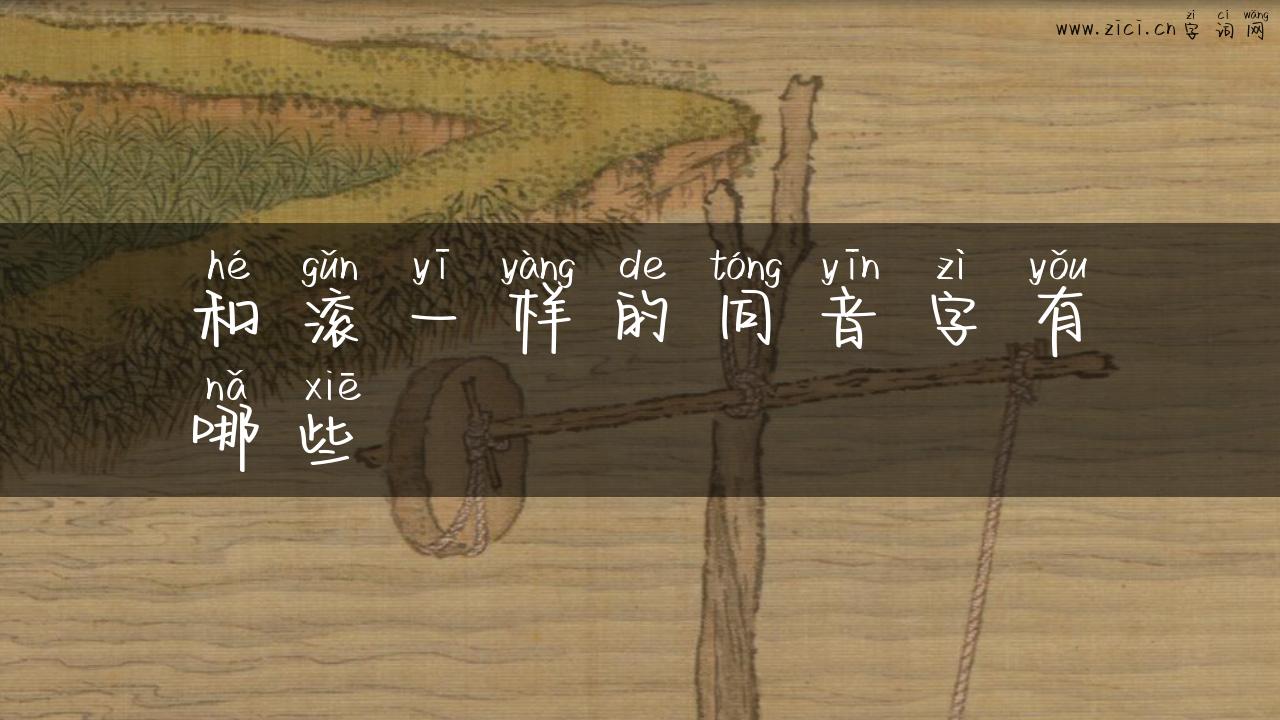 zì cí wǎng
www.zici.cn 字词网
hé gǔn yī yàng de tóng yīn zì yǒu
和滚一样的同音字有
nǎ xiē
哪些